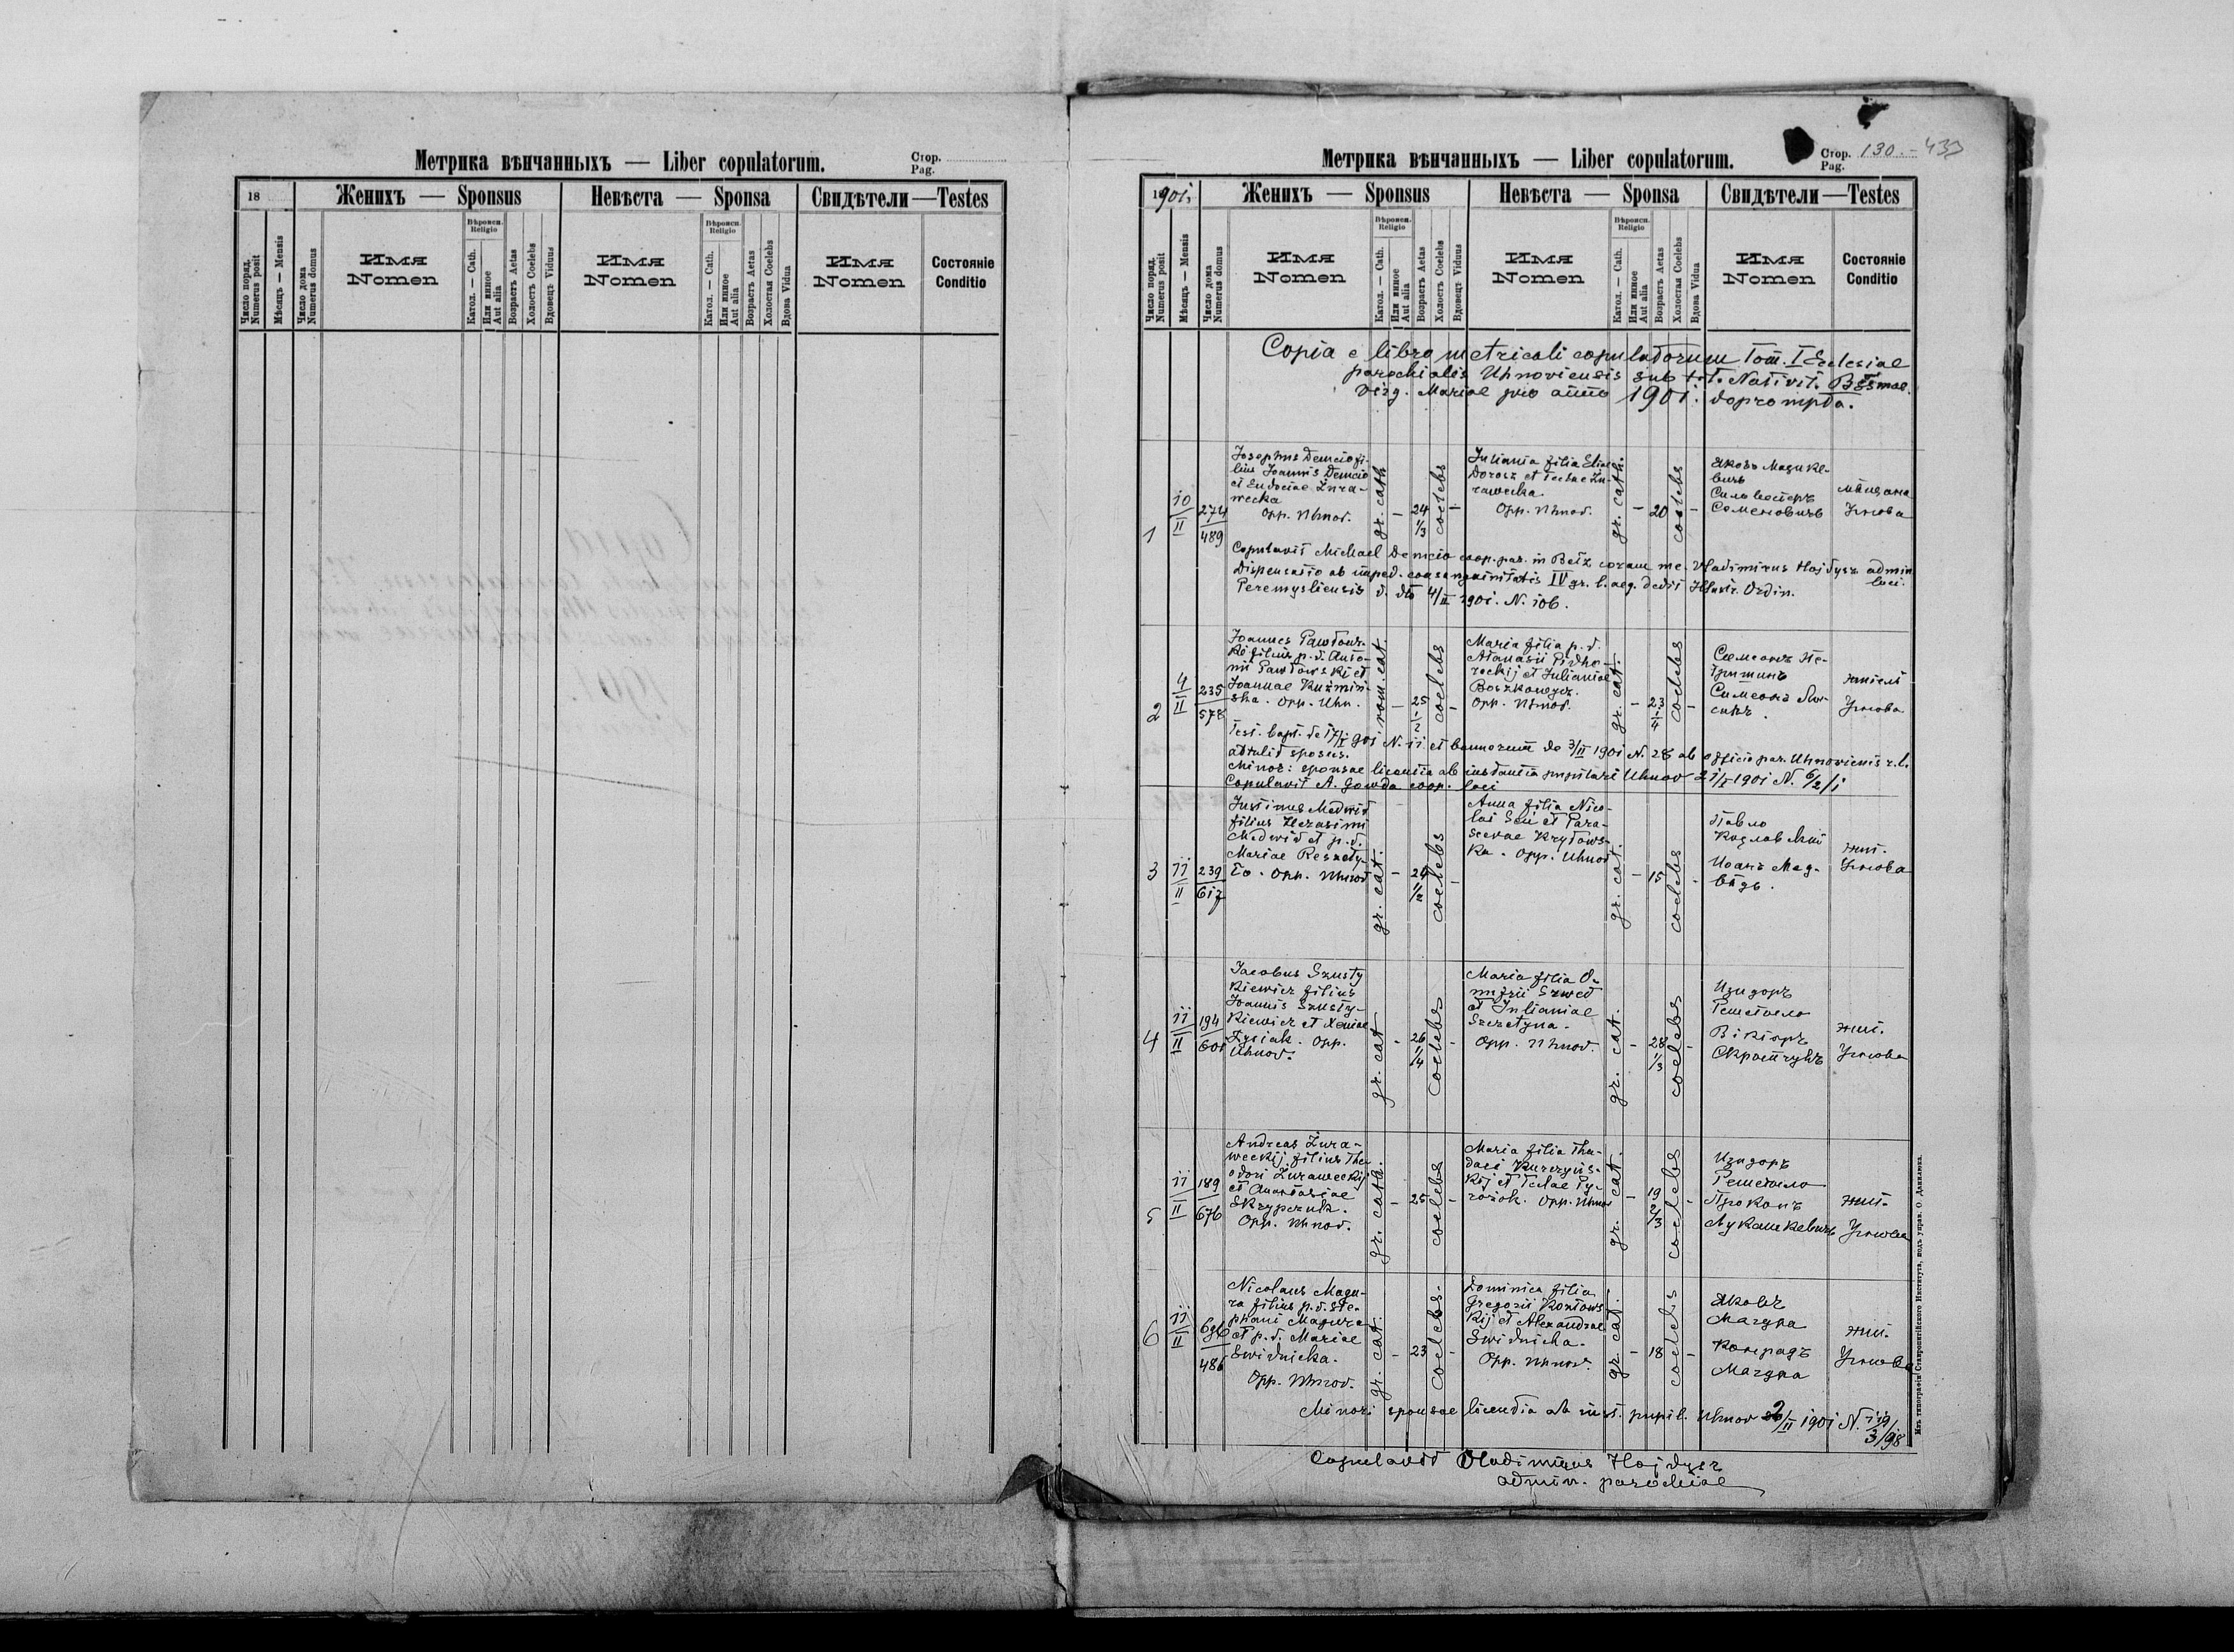 Метрика вѣнчанныхъ — Liber copulatorum.
Стор.
Pag.
18
Женихъ — Sponsus
Невѣста — Sponsa
Свидѣтели — Testes
Число поряд.
Numerus posit
Мѣсяцъ — Mensis
Число дома
Numerus domus
Имя
Nomen
Вѣроисп.
Religio
Катол. — Cath.
Или иное
Aut alia
Возрастъ Aetas
Холостъ Coelebs
Вдовецъ Viduus
Имя
Nomen
Вѣроисп.
Religio
Катол. — Cath.
Или иное
Aut alia
Возрастъ Aetas
Холостая Coelebs
Вдова Vidua
Имя
Nomen
Состояніе
Conditio
Метрика вѣнчанныхъ — Liber copulatorum.
Стор.
Pag.
130.-433
1901
Женихъ — Sponsus
Невѣста — Sponsa
Свидѣтели — Testes
Число поряд.
Numerus posit
Мѣсяцъ — Mensis
Число дома
Numerus domus
Имя
Nomen
Вѣроисп.
Religio
Катол. — Cath.
Или иное
Aut alia
Возрастъ Aetas
Холостъ Coelebs
Вдовецъ Viduus
Имя
Nomen
Вѣроисп.
Religio
Катол. — Cath.
Или иное
Aut alia
Возрастъ Aetas
Холостая Coelebs
Вдова Vidua
Имя
Nomen
Состояніе
Conditio
Copia e libro metricali copulatorum Tom. I Ecclesiae
parochialis Uhnoviensis sub tit. Nativit. Bssmae.
Virg. Mariae pro anno 1901. deprompta.
1
10/II
274/489
Josephus Demcio fi-
lius Joannis Demcio
et Eudociae Żura-
wecka
Opp. Uhnov.
gr. cath
-
24 1/3
coelebs
-
Juliania filia Eliae
Dorosz et Teclae Żu-
rawecka
Opp. Uhnov.
gr. cath.
-
20
coelebs
-
Яковъ
Сильвестеръ
Семеновичъ
мѣщане
Угнова
Copulavit Michael Demcio coop. par. in Bełz coram me. Vladimirus Hajdysz admin.
loci.
Dispensatio ab imped. consanguinitatis IV gr. l. aeq. dedit Illustr. Ordin.
Peremysliensis d. dto 4/II 1901. N. 106.
2
4/II
235/578
Joannes Pawłows-
ki filius p. d. Anto-
nii Pawłowski et
Joannae Kuźmiń-
ska. Opp. Uhn.
rom. cat.
-
25 1/2
coelebs
-
Maria filia p. d.
Atanasii Pidho-
reckij et Julianiae
Opp. Uhnov.
gr. cat.
-
23 1/4
coelebs
-
Симеонъ Пе-
Симеонъ
жители
Угнова
Test. bapt. de 17/I 901 N. 11 et bannorum de 3/II 1901 N. 28 ab officio par. Uhnoviensis r. l.
attulit sponsus.
Minor: sponsae licentia ab instantia pupilari Uhnov 21/I 1901 N. 6/2/1
Copulavit A. Gowda coop. loci
3
11/II
239/617
Justinus Medwid
filius Herasimi
Medwid et p. d.
Mariae Reszety-
ło. Opp. Uhnov
gr. cat.
-
24 1/2
coelebs
-
Anna filia Nico-
lai Sen et Para-
scevae Kryłows-
ka. Opp. Uhnov
gr. cat.
-
15
coelebs
-
Павло
Козловскій
Иоанъ Мед-
вѣдь.
жит.
Угнова
4
11/II
194/601
Jacobus Szusty
kiewicz filius
Joannis Szusty-
kiewicz et Xeniae
Łysiak. Opp.
Uhnov.
gr. cat
-
26 1/4
coelebs
-
Maria filia O-
nufrii Szwed
et Julianiae
Szczetyna.
Opp. Uhnov.
gr. cat.
-
28 1/3
coelebs
-
Изидоръ
Решетило
Викторъ
Скрипчукъ
жит.
Угнова
5
11/II
189/676
Andreas Żura-
weckij filius The-
odori Żuraweckij
et Anastasiae
Skrypczuk.
Opp. Uhnov.
gr. cath.
-
25
coelebs
-
Maria filia Tha-
daei Kurczyńs-
kij et Teclae Py-
rożok. Opp. Uhnov
gr. cat.
-
19 2/3
coelebs
-
Изидоръ
Решетило
Прокопъ
Лукашкевичъ
жит.
Угнова
6
11/II
696/486
Nicolaus Magu-
ra filius p. d. Ste-
phani Magura
et p. d. Mariae
Świdnicka.
Opp. Uhnov.
gr. cat.
-
23
coelebs.
-
Dominica filia
Gregorii Kozłows
kij et Alexandrae
Świdnicka.
Opp. Uhnov.
gr. cat.
-
18
coelebs
-
Яковъ
Магура
Конрадъ
Магура
жит.
Угнова
Minori sponsae licentia ab inst. pupil. Uhnov 2/II 1901 N. 119/3/98
Copulavit Vladimirus Hajdysz
admin. parochiae
Изъ типографіи Ставропигійского Института, подъ управ. О. Данилюка.